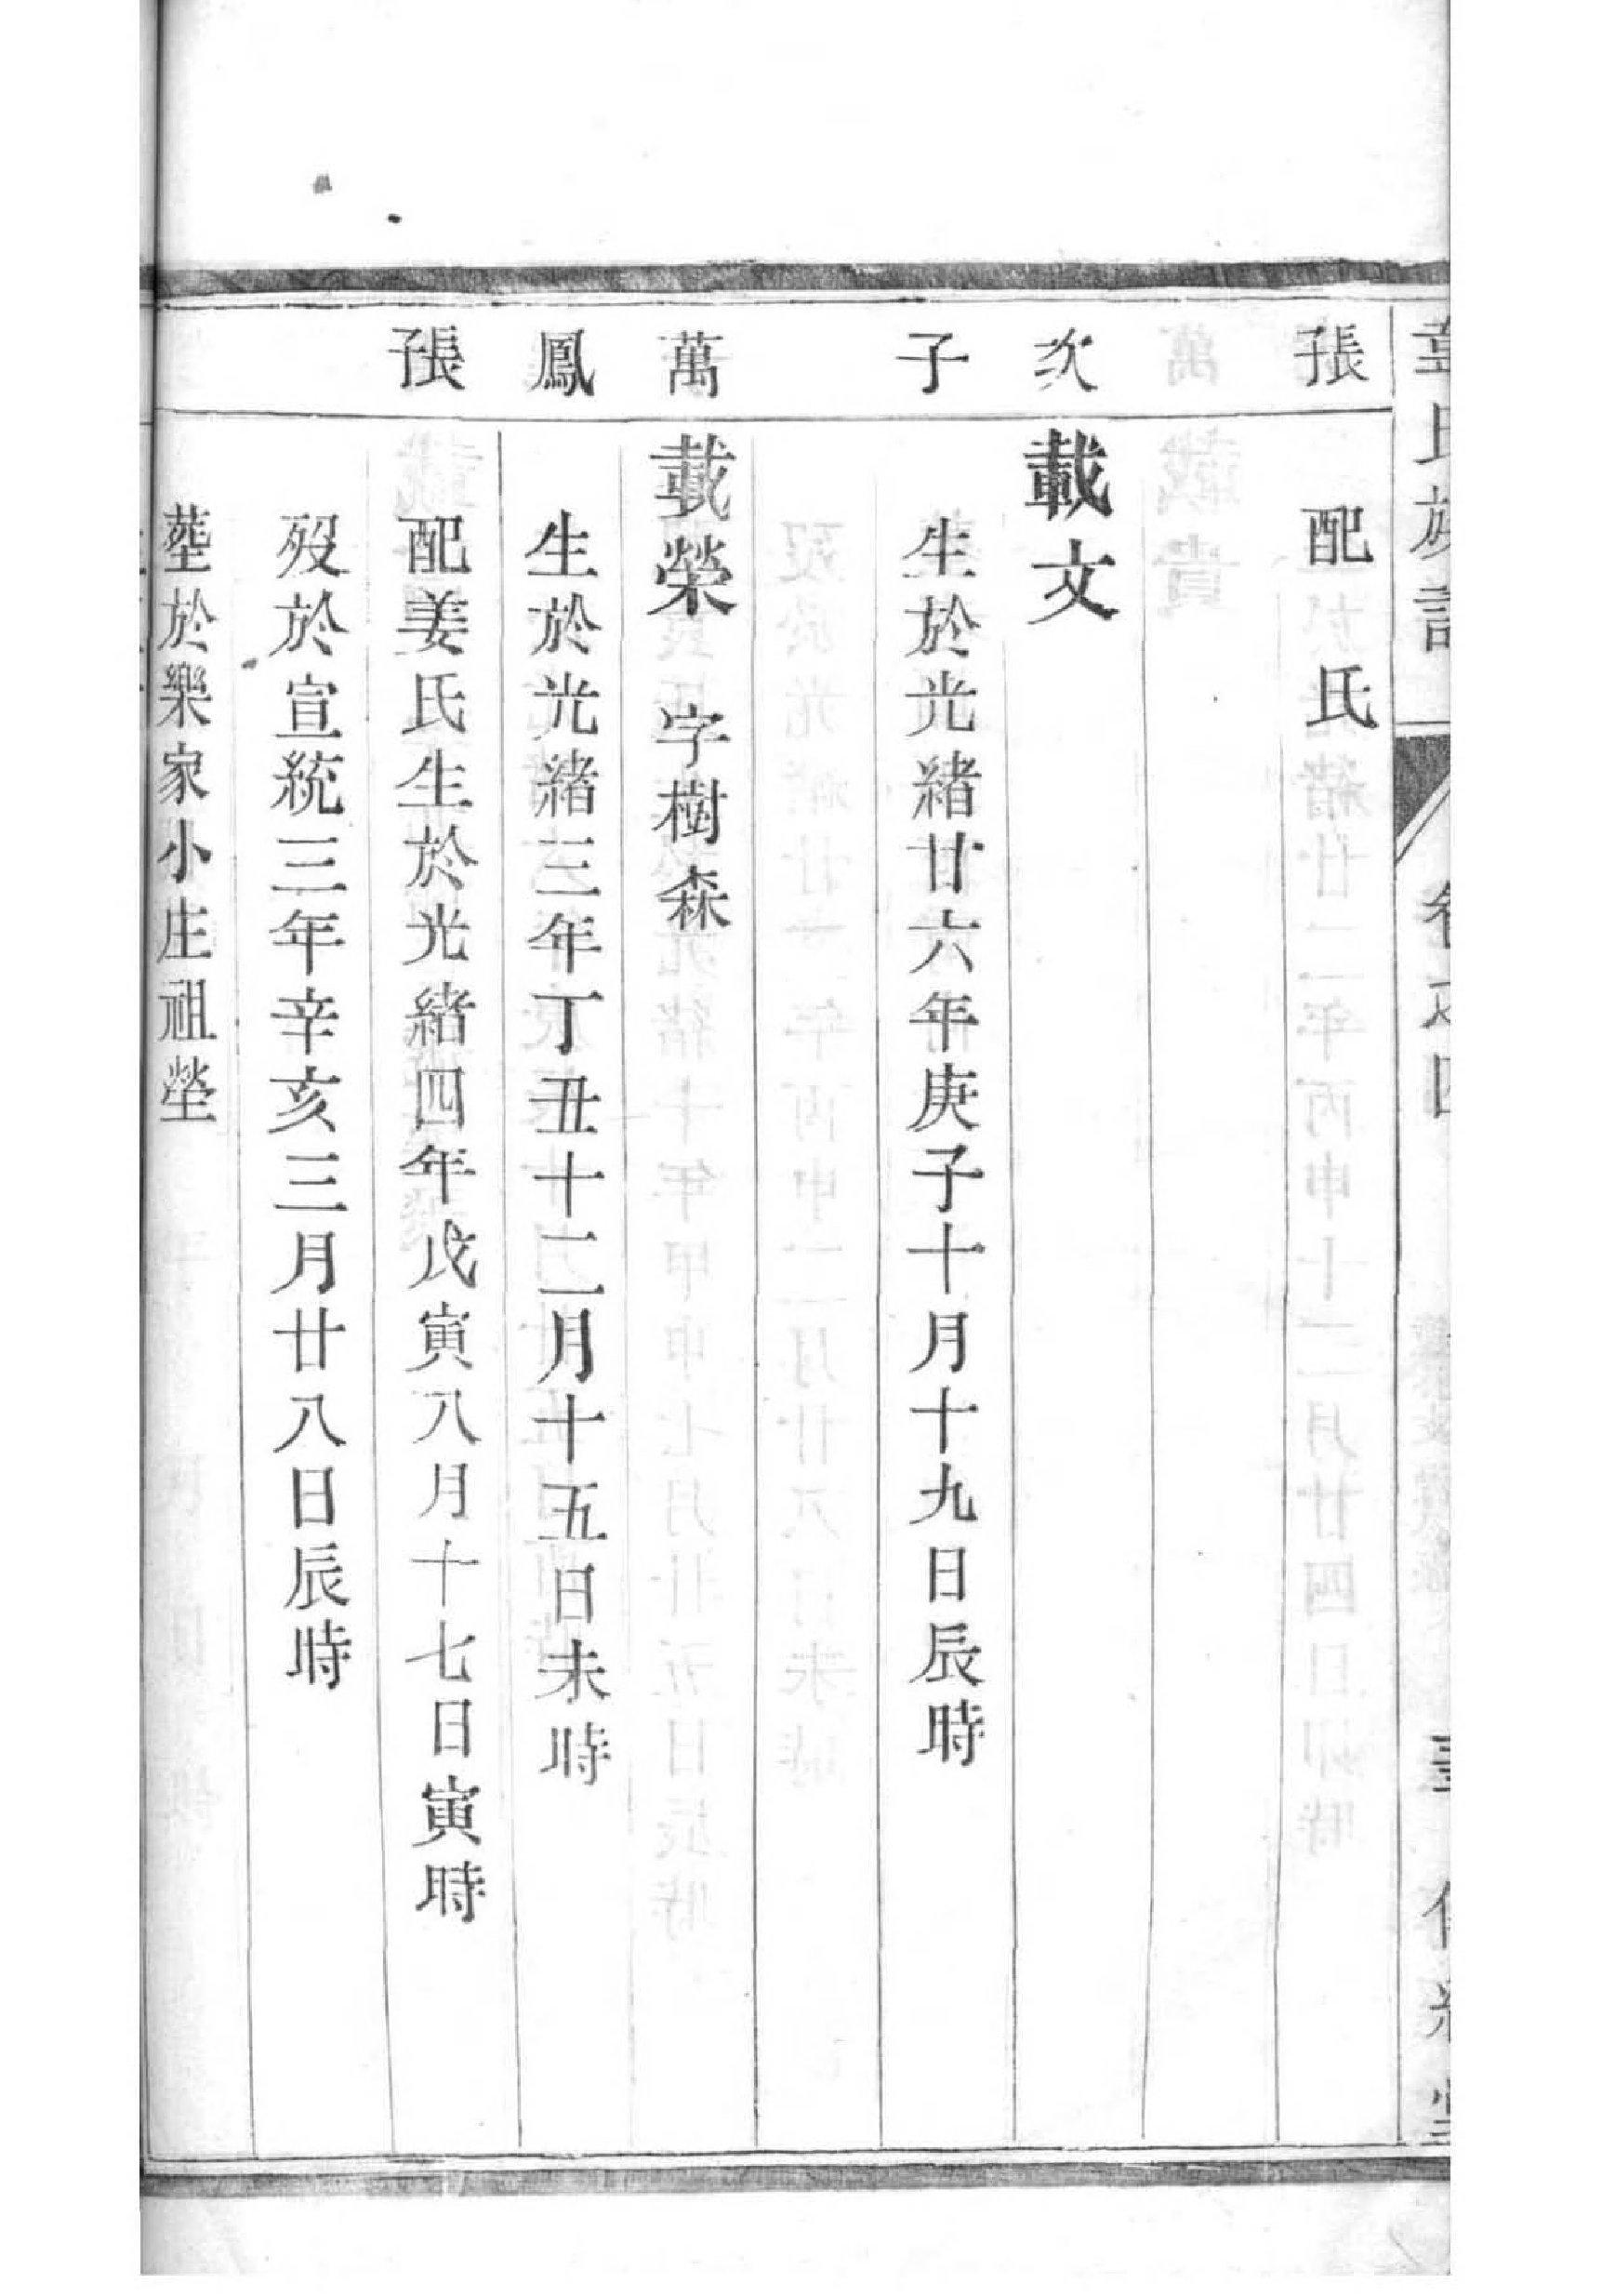 氏族
卷之四
張
配 氏
次
載文
子
生於光緒廿六年庚子十月十九日辰時
萬
載榮 字樹森
鳳
生於光緒三年丁丑十二月十五日未時
張
配姜氏生於光緒四年戊寅八月十七日寅時
歿於宣統三年辛亥三月廿八日辰時
葬於樂家小庄祖塋